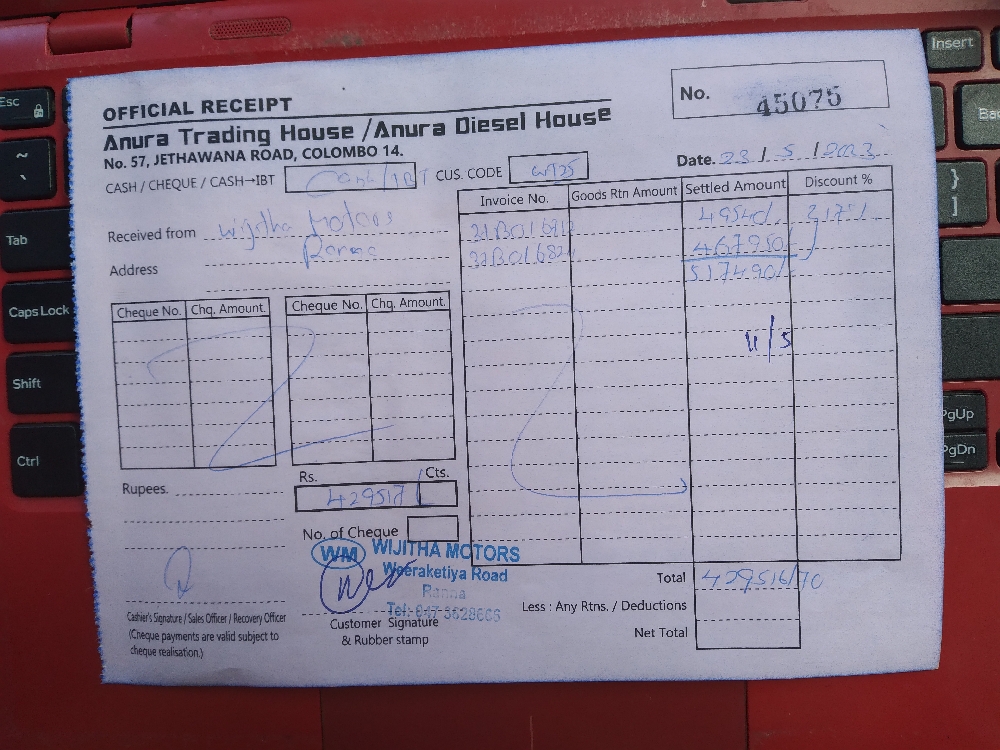 OFFICIAL RECEIPT
No. 45075
Anura Trading House /Anura Diesel House
No. 57, JETHAWANA ROAD, COLOMBO 14.
Date. 23 / 5 / 2023
CASH / CHEQUE / CASH→IBT Cash / IBT CUS. CODE
Invoice No. Goods Rtn Amount Settled Amount Discount %
Received from Wijitha Motors
Address Ranna
49540/
467950/
517490/
Cheque No. Chq. Amount. Cheque No. Chq. Amount.
Rupees.
Rs. Cts.
429517/
No. of Cheque
WM WIJITHA MOTORS
Weeraketiya Road
Ranna
Tel: 047 5628666
Cashier's Signature / Sales Officer / Recovery Officer
(Cheque payments are valid subject to
cheque realisation.)
Customer Signature
& Rubber stamp
Total 429516/70
Less : Any Rtns. / Deductions
Net Total
Esc
~
`
Tab
Caps Lock
Shift
Ctrl
Insert
}
]
PgUp
PgDn